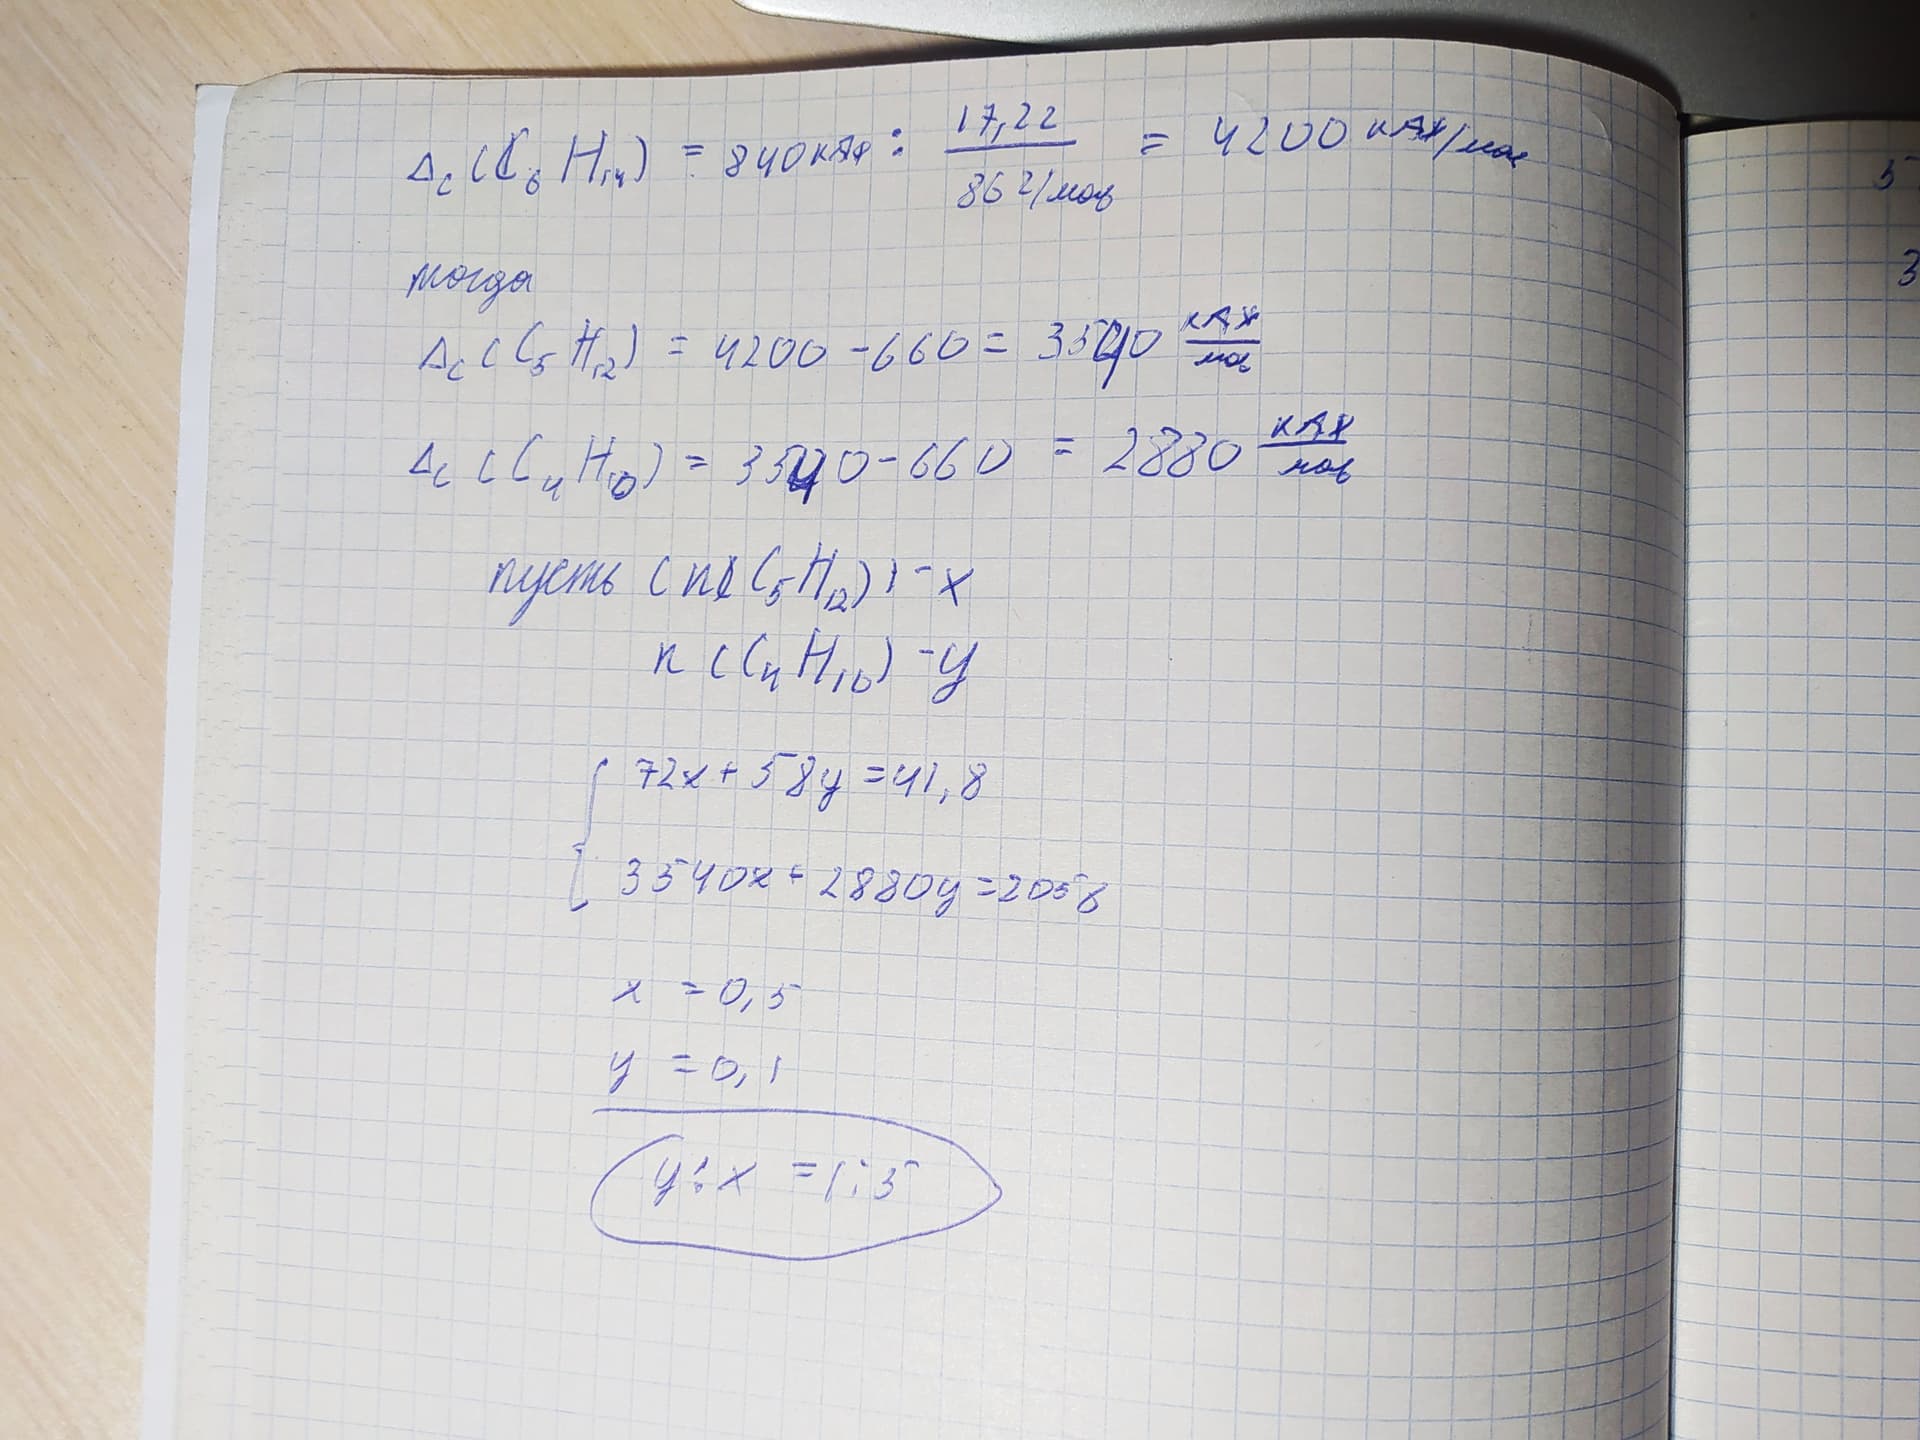 Δc(C6H14) = 840 кДж : 17,22 / 86 г/моль = 4200 кДж/моль
тогда
Δc(C5H12) = 4200 - 660 = 3540 кДж/моль
Δc(C4H10) = 3540 - 660 = 2880 кДж/моль
пусть (n(C5H12)) - x
n(C4H10) - y
72x + 58y = 41,8
3540x + 2880y = 2058
x = 0,5
y = 0,1
y:x = 1:5
5
3